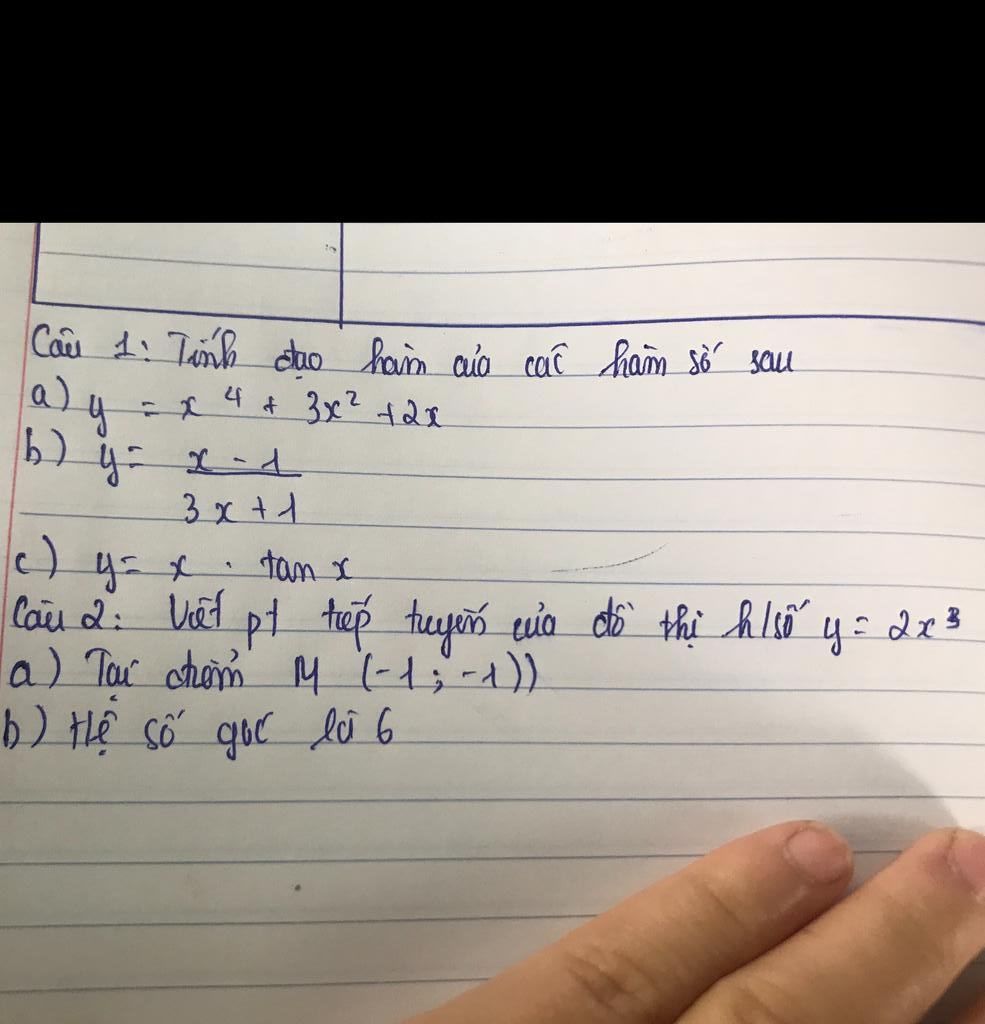 Câu 1: Tính đạo hàm của các hàm số sau
a) y = x⁴ + 3x² + 2x
b) y = (x - 1)/(3x + 1)
c) y = x . tan x
Câu 2: Viết pt tiếp tuyến của đồ thị h/số y = 2x³
a) Tại điểm M (-1 ; -1))
b) Hệ số góc là 6